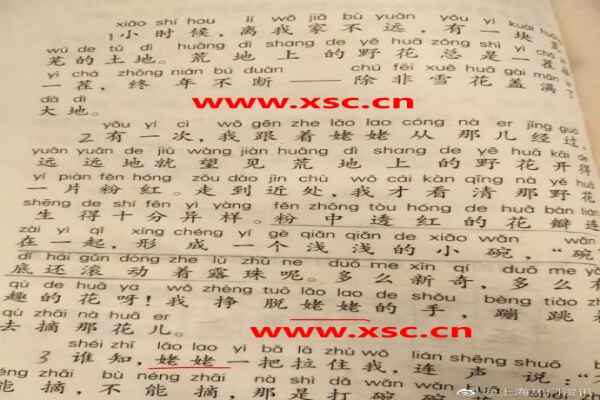 xiǎo shí hou lí wǒ jiā bù yuǎn yǒu yí kuài huāng
1小时候，离我家不远，有一块荒
wú de tǔ dì huāng dì shang de yě huā zǒng shì yì chá
芜的土地。荒地上的野花总是一茬
yì chá zhōng nián bú duàn chú fēi xuě huā gài mǎn
一茬，终年不断——除非雪花盖满了
dà dì
大地。
www.xsc.cn
yǒu yí cì wǒ gēn zhe lǎo lao cóng nà er jīng guò
2有一次，我跟着姥姥从那儿经过，
yuǎn yuǎn de jiù wàng jiàn huāng dì shang de yě huā kāi de
远远地就望见荒地上的野花开得
yí piàn fěn hóng zǒu dào jìn chù wǒ cái kàn qīng nà yě huā
一片粉红。走到近处，我才看清那野花
shēng de shí fēn yì yàng fěn zhōng tòu hóng de huā bàn lián
生得十分异样。粉中透红的花瓣连
zài yì qǐ xíng chéng yí gè qiǎn qiǎn de xiǎo wǎn wǎn
在一起，形成一个浅浅的小碗，“碗”
dǐ hái gǔn dòng zhe lù zhū ne duō me xīn qí duō me yǒu
底还滚动着露珠呢。多么新奇，多么有
qù de huā ya wǒ zhèng tuō lǎo lao de shǒu bèng tiào zhe
趣的花呀！我挣脱姥姥的手，蹦跳着
qù zhāi nà huā er
去摘那花儿。
www.xsc.cn
shéi zhī lǎo lao yì bǎ lā zhù wǒ lián shēng shuō
3谁知，姥姥一把拉住我，连声说：“
néng zhāi bù néng zhāi nà shì dǎ wǎn wǎn
能摘，不能摘，那是打碗碗